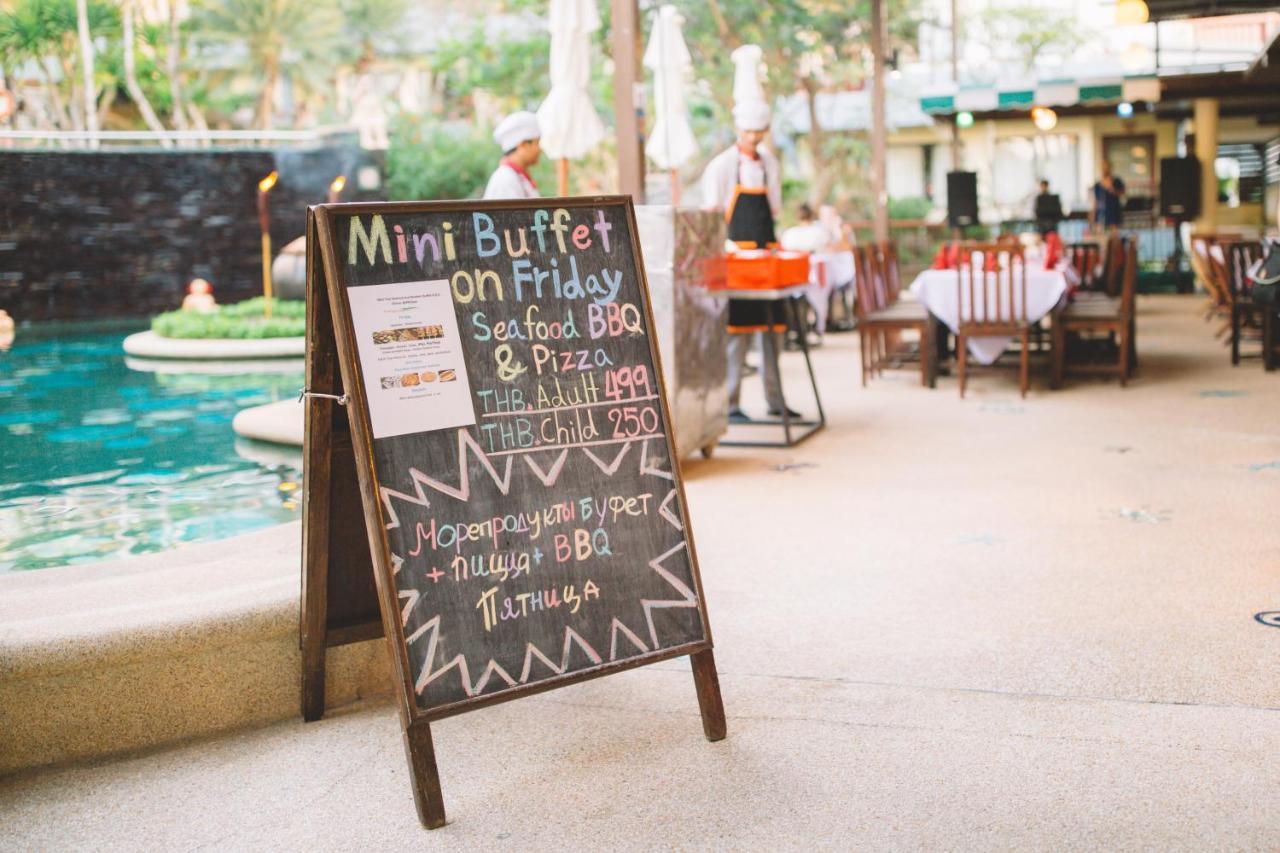 Mini Buffet
on Friday
Seafood BBQ
& Pizza
THB. Adult 499
THB. Child 250
Морепродукты Буфет
+ пицца+ BBQ
Пятница